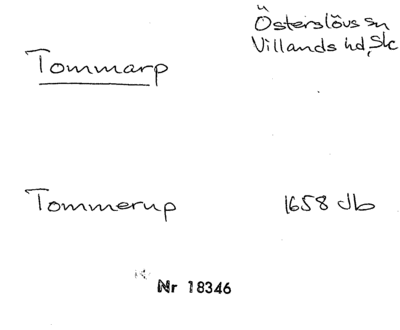 Österslövs sn
Villands hd, Sk
Tommarp
Tommerup 1658 Jb
Nr 18346